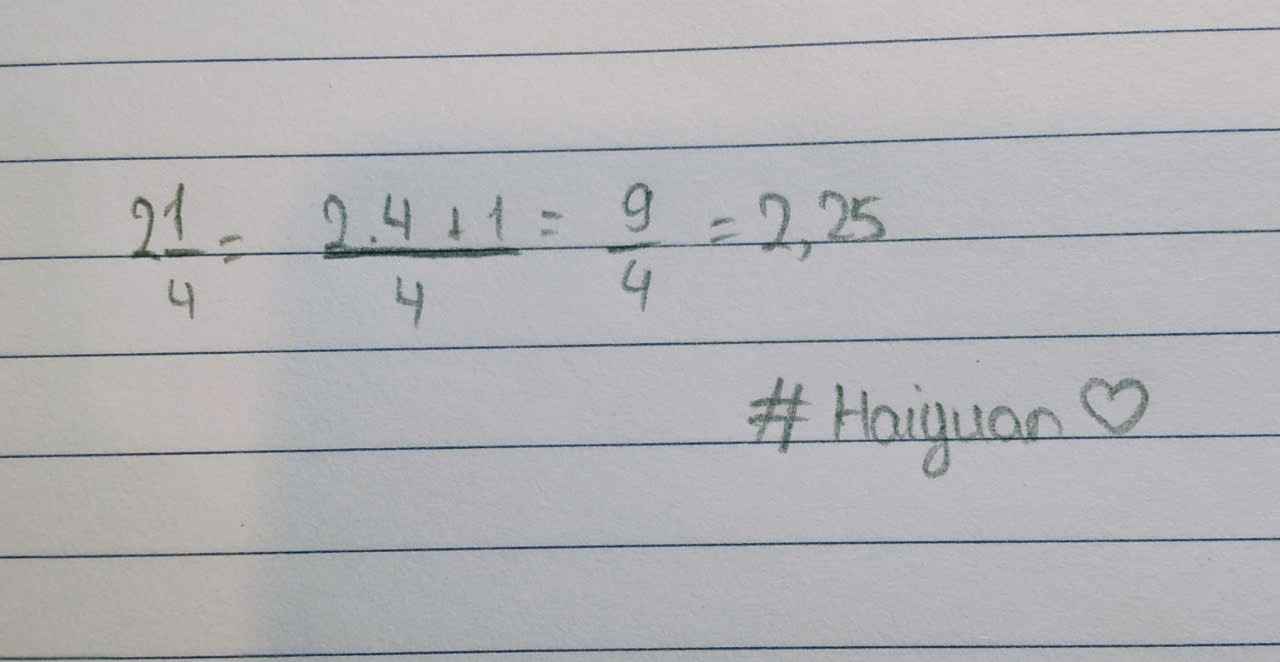 2 1/4 = (2.4+1)/4 = 9/4 = 2,25
# Haiyuan ♡